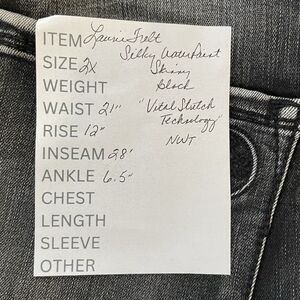 ITEM Laurie Felt
SIZE 2X Silky Water Paint
WEIGHT Skinny
Black
WAIST 21" "Vital Stretch
RISE 12" Technology"
INSEAM 28' NWT
ANKLE 6.5"
CHEST
LENGTH
SLEEVE
OTHER